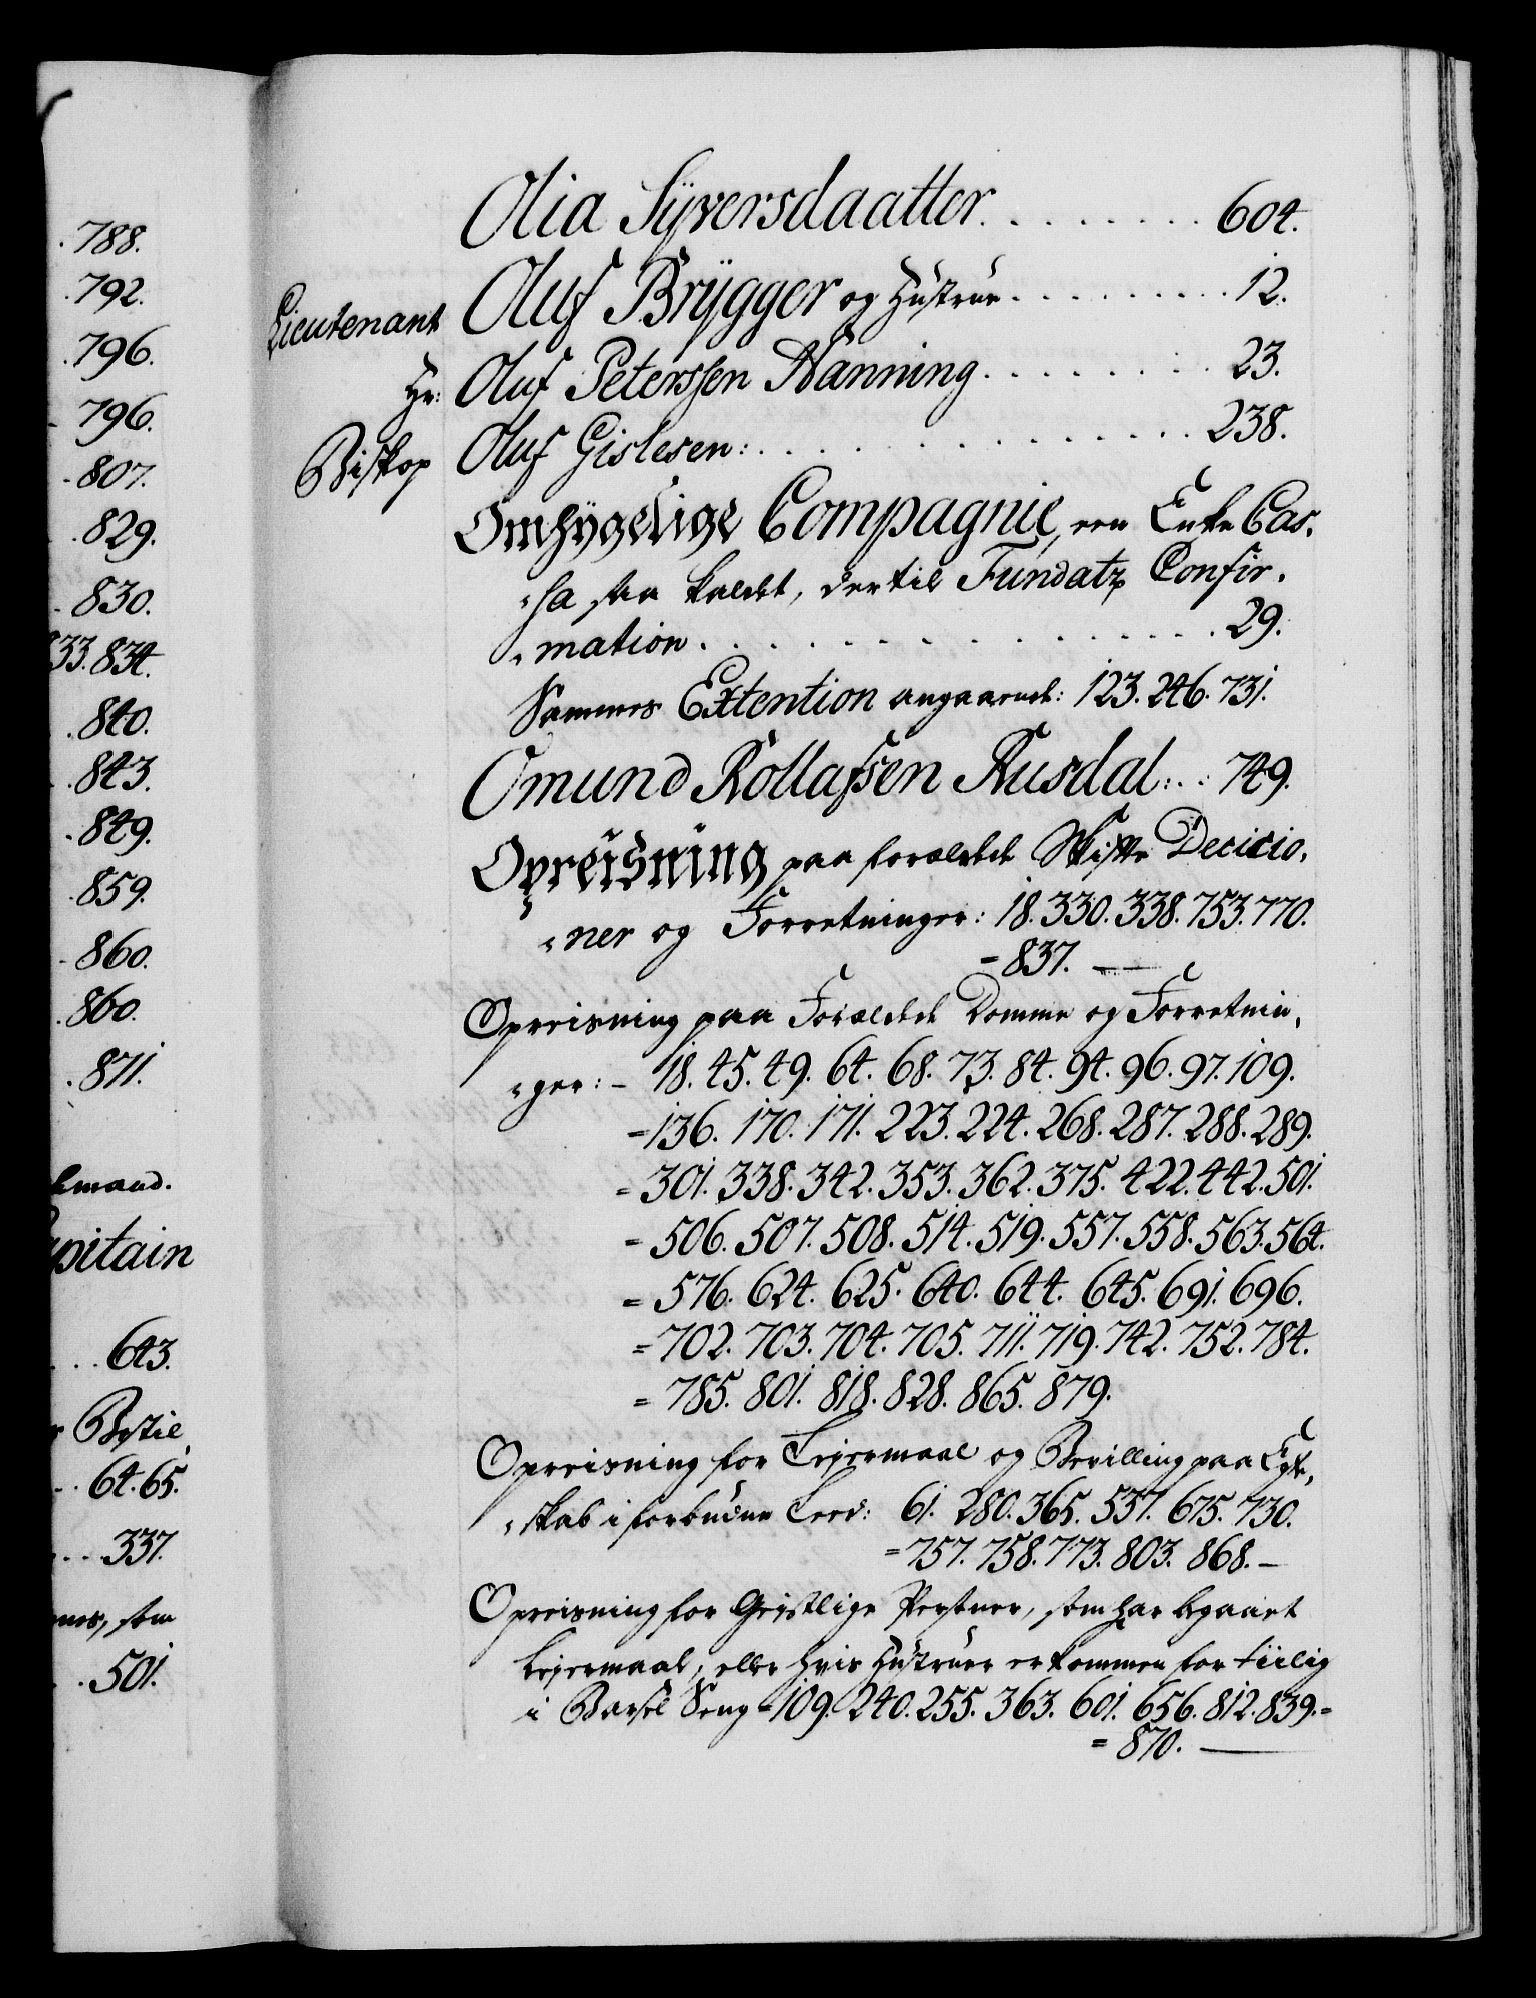 788.
792.
796.
796.
807.
829.
830.
833. 834.
840.
843.
849.
859.
860.
860.
871.
pitain
643.
Bestil
64. 65.
337.
som
501.
Olia Syversdaatter. 604.
Lieutenant Oluf Brygger og Hustrue. 12.
Hr: Oluf Peterssen Nanning. 23.
Biskop Oluf Gislesen: 238.
Omhygelige Compagnie, een Enke Cas,
sa saa kaldet, dertil Fundatz Confir,
mation. 29.
Sammes Extention angaaende: 123. 246. 731.
Omund Rollafsen Ausdal: 749.
Opreisning paa forældede Skifte Decicio,
ner og Forretninger: 18. 330. 338. 753. 770.
= 837.
Opreisning paa Forældede Domme og Forretnin,
ger: - 18. 45. 49. 64. 68. 73. 84. 94. 96. 97. 109.
= 136. 170. 171. 223. 224. 268. 287. 288. 289.
= 301. 338. 342. 353. 362. 375. 422. 442. 501.
= 506. 507. 508. 514. 519. 557. 558. 563. 564.
= 576. 624. 625. 640. 644. 645. 691. 696.
= 702. 703. 704. 705. 711. 719. 742. 752. 784.
= 785. 801. 818. 828. 865. 879.
Opreisning for Leiermaal og Bevilling paa Egte,
skab i forbudne Leed: 61. 280. 365. 537. 675. 730.
= 757. 758. 773. 803. 868. -
Opreisning for Geistlige Persohner, som har begaaet
Leiermaal, eller hvis Hustruer er kommen for tiilig
i Barsel Seng = 109. 240. 255. 363. 601. 656. 812. 839. =
= 870.